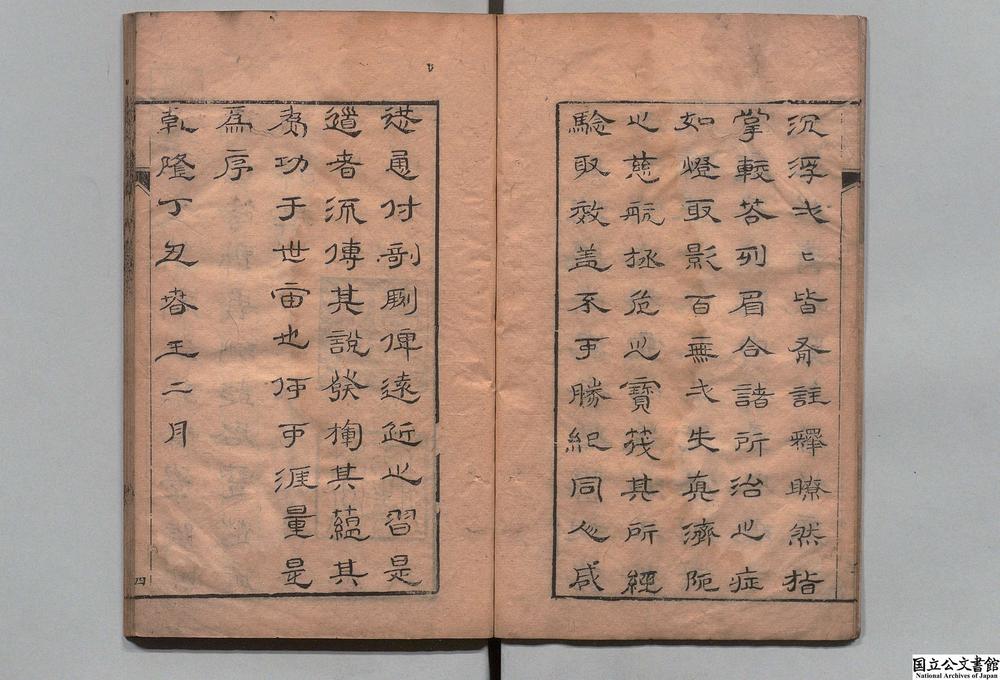 沉浮弌〻皆爲註釋瞭然指
掌較若列眉合諸所治㞢症
如燈取影百無弌失真濟阨
㞢慈航拯危㞢寶筏其所經
驗取效蓋不可勝紀同人咸
慫恿付剞劂俾遠近㞢習是
道者流傳其說發掬其蘊其
爲功于世宙也何可涯量是
爲序
乾隆丁丑春王二月
四
国立公文書館
National Archives of Japan